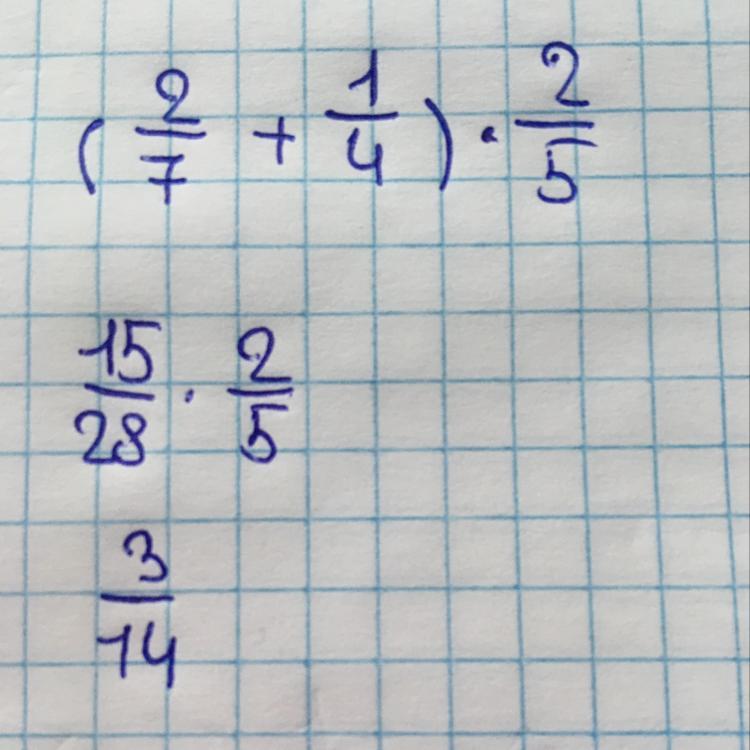 (2/7 + 1/4) · 2/5
15/28 · 2/5
3/14